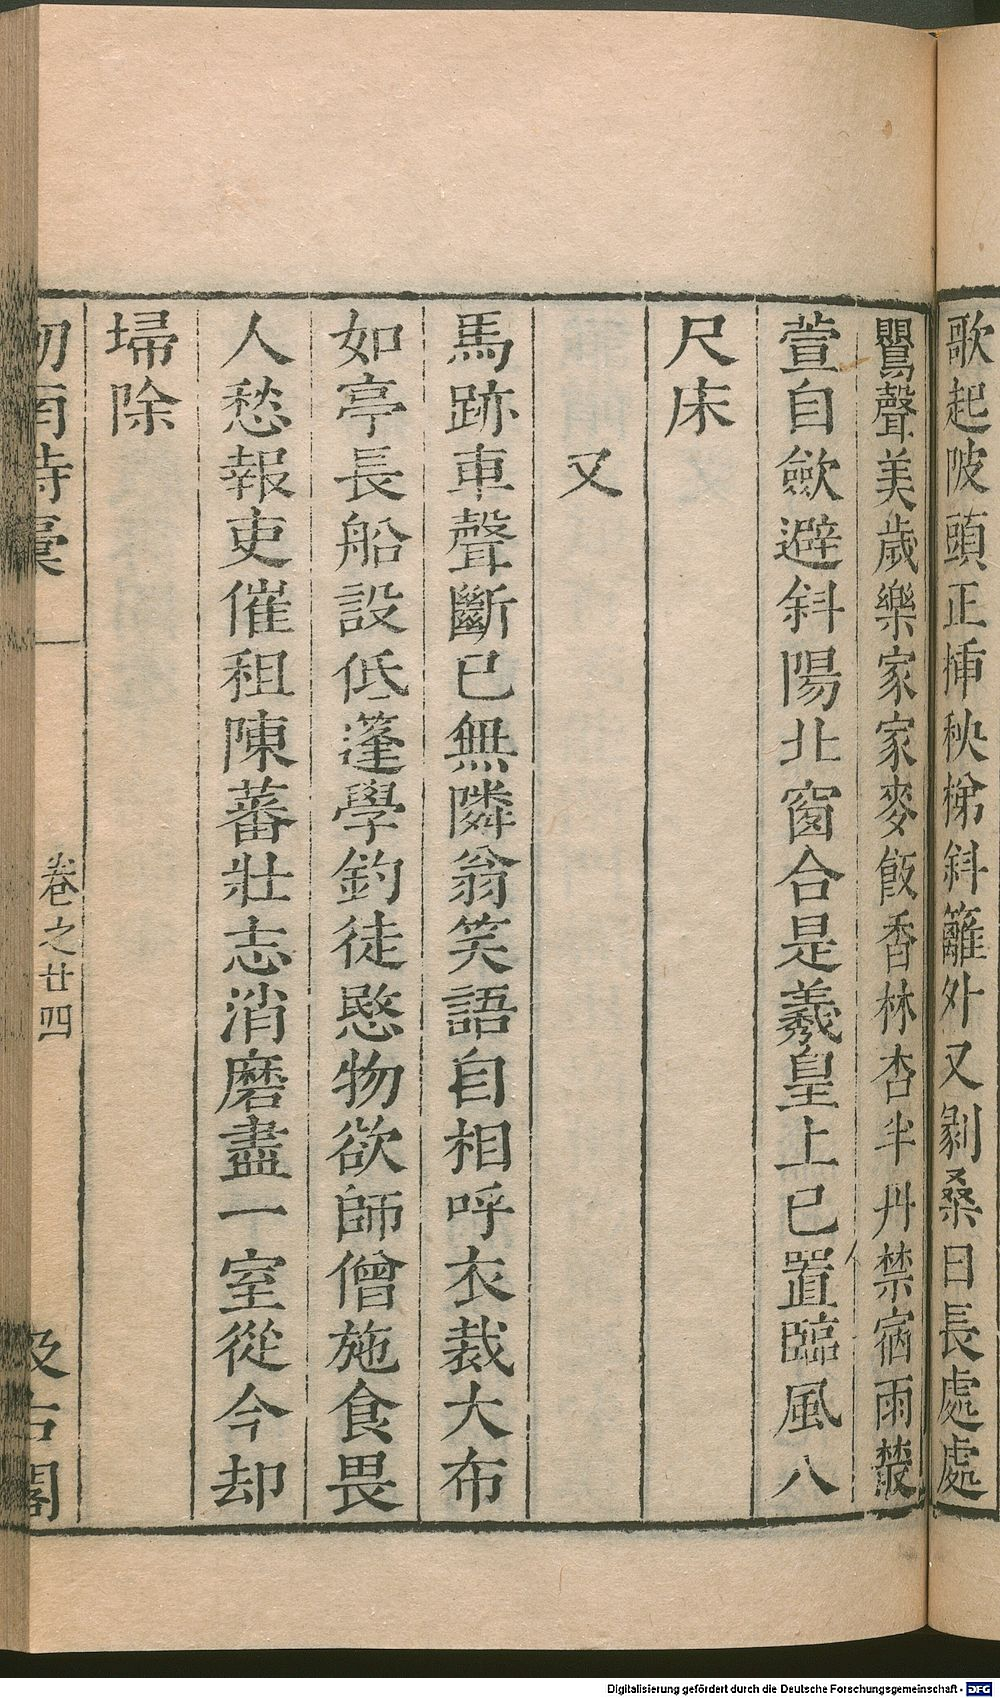 歌起陂頭正揷秧梯斜籬外又剥桑日長處處
鸎聲美歲樂家家麥飯香林杏半丹禁宿雨叢
萱自歛避斜陽北窗合是羲皇上已置臨風八
尺床
又
馬跡車聲斷已無隣翁笑語自相呼衣裁大布
如亭長船設低篷學釣徒愍物欲師僧施食畏
人愁報吏催租陳蕃壯志消磨盡一室從今却
埽除
劒南詩稾
卷之廿四
汲古閣
Digitalisierung gefördert durch die Deutsche Forschungsgemeinschaft - DFG